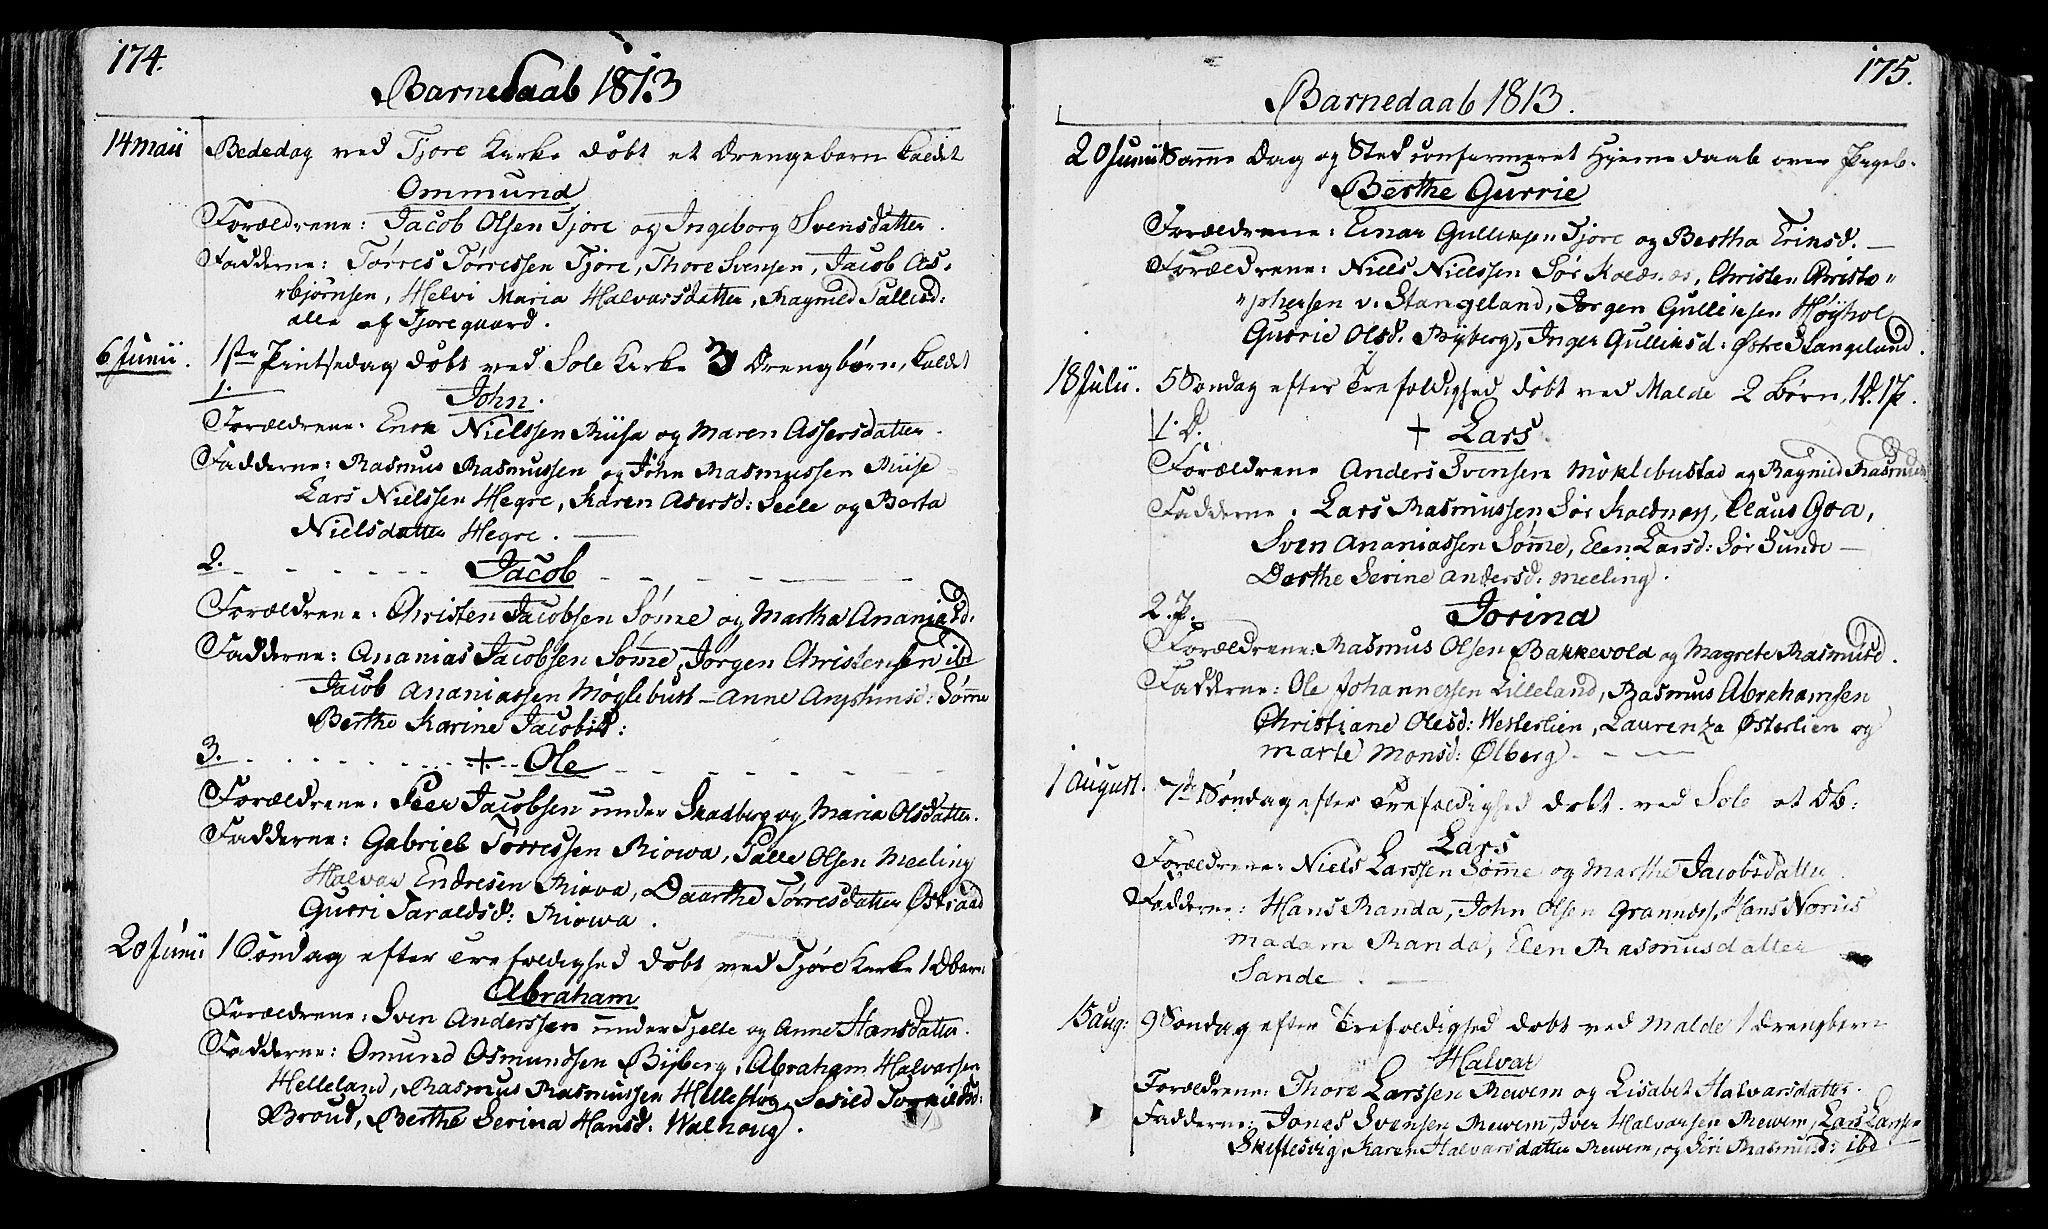 174.
Barnedaab 1813
14 maii Bededag ved Tjore Kirke døbt et Drengebarn kaldet
Ommund
Forældrene: Jacob Olsen Tjore og Ingeborg Svensdatter.
Fadderne: Tørres Tørressen Tjore, Thore Svensen, Jacob As-
"bjørnsen, Helvi Maria Halvarsdatter, Ragnild Tallisd:
alle af Tjoregaard.
6 Junii. 1ste Pintsedag døbt ved Sole Kirke 3 Drengbørn, kaldet
1. John.
Forældrene: Enok Nielssen Riisa og Maren Assersdatter.
Fadderne: Rasmus Rasmussen og John Rasmussen Riise
Lars Nielssen Hegre, Karen Asersd: Seele og Berta
Nielsdatter Hegre.
2. Jacob
Forældrene: Christen Jacobsen Sømme og Martha Ananiasd.
Fadderne: Ananias Jacobsen Sømme, Jørgen Christensen ibd
Jacob Ananiassen Møglebust - Anne Sømme
Berthe Karine Jacobsd:
3. + Ole
Forældrene: Peer Jacobsen under Skadberg og Maria Olsdatter.
Fadderne: Gabriel Tørressen Riowa, Palle Olsen Meeling
Halvar Endresen Riova, Daarthe Tørresdatter Østraad
Gurri Taraldsd: Riowa.
20 Junii 1 Søndag efter Trefoldighed døbt ved Tjøre Kirke 1 Dbarn
Abraham
Forældrene: Sven Anderssen under Tjelte og Anne Hansdatter.
Fadderne: Omund Osmundssen Byberg, Abraham Halvarsen
Helleland, Rasmus Rasmussen Hellestøe, Sesild
Broud, Berthe Serina Hansd: Walhoug.
175.
Barnedaab 1813.
20 Junii Samme Dag og Sted confirmeret Hjemmedaab over Pigeb.
Berthe Gurrie
Forældrene: Einar Gulliksen Tjore og Bertha Eriksd. —
Forældrene: Niels Nielssen Sør Kolnes, Christen Christo"
"phersen v. Stangeland, Jørgen Gulliksen Høyhol
Gurrie Olsd. Byberg, Inger Gulliksd: Østre Stangeland.
18 Julii. 5 Søndag efter Trefoldighed døbt ved Malde 2 Børn, 1D. 1P.
1. D. + Lars
Forældrene Anders Svensen Moklebustad og Ragnild Rasmusd
Fadderne: Lars Rasmussen Sør Kolnes, Claus Goa,
Sven Ananiassen Sømme, Elen Larsd: Sør Sunde —
Dorthe Serine Andersd. Meeling.
2. P. Jorina
Forældrene: Rasmus Olsen Bakkevold og Magrete Rasmusd.
Fadderne: Ole Johannessen Lilleland, Rasmus Abrahamsen
Christiane Olesd: Westerlien, Laurenza Østerlien og
Marte Monsd: Ølberg.
1 August. 7de Søndag efter Trefoldighed døbt ved Sole et Db:
Lars
Forældrene: Niels Larssen Sømme og Marthe Jacobsdatter
Fadderne: Hans Randa, John Olsen Grannes, Hans Norius
Madam Randa, Elen Rasmusdatter
Sande.
15 Aug: 9 Søndag efter Trefoldighed døbt ved Malde 1 Drengbarn
Halvar
Forældrene: Thore Larssen Rewem og Lisabet Halvarsdatter.
Fadderne: Jonas Svensen Rewem, Iver Halvarsen Rewem, Lars Larssen
Skiftesvig, Karen Halvarsdatter Rewem, og Siri Rasmusd: ibd